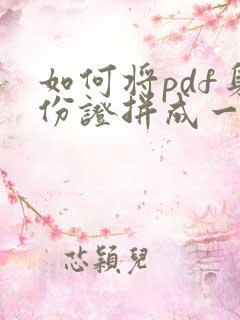 如何将pdf身
份證拼成一
芯穎兒